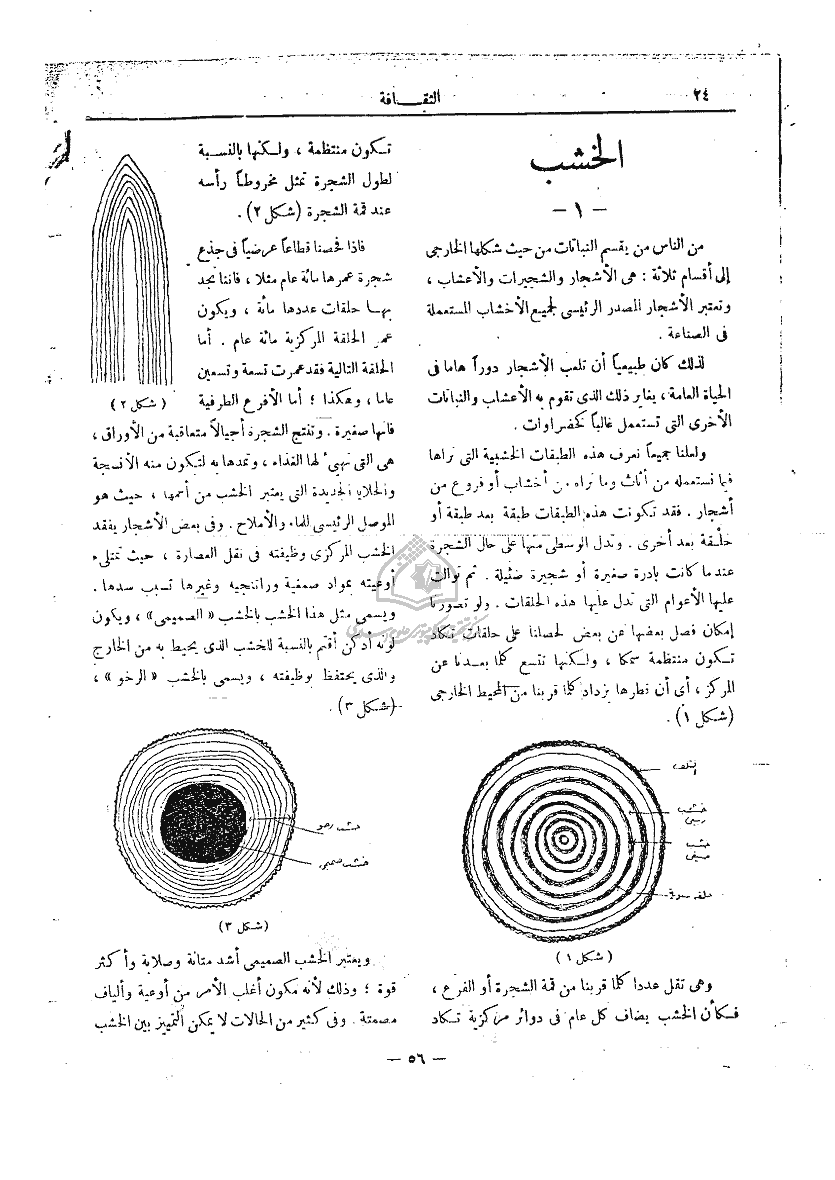 ٢٤
الثقافة
الخشب
— ١ —
من الناس من يقسم النباتات من حيث شكلها الخارجى
إلى أقسام ثلاثة : هى الأشجار والشجيرات والأعشاب ،
وتعتبر الأشجار المصدر الرئيسى لجميع الأخشاب المستعملة
فى الصناعة .
لذلك كان طبيعياً أن تلعب الأشجار دوراً هاما فى
الحياة العامة ، يغاير ذلك الذى تقوم به الأعشاب والنباتات
الأخرى التى تستعمل غالباً كخضراوات .
ولعلنا جميعاً نعرف هذه الطبقات الخشبية التى نراها
فيما نستعمله من أثاث وما نراه من أخشاب أو فروع من
أشجار . فقد تكونت هذه الطبقات طبقة بعد طبقة أو
حلقة بعد أخرى . وتدل الوسطى منها على حال الشجرة
عندما كانت بادرة صغيرة أو شجيرة ضئيلة . ثم توالت
عليها الأعوام التى تدل عليها هذه الحلقات . ولو تصورنا
إمكان فصل بعضها عن بعض لحصلنا على حلقات تكاد
تكون منتظمة سمكا ، ولكنها تتسع كلما بعدنا عن
المركز ، أى أن قطرها يزداد كلما قربنا من المحيط الخارجى
(شكل ١) .
خشب
خشب
صيفى
(شكل ١)
وهى تقل عددا كلما قربنا من قمة الشجرة أو الفرع ،
فكأن الخشب يضاف كل عام فى دوائر مركزية تكاد
تكون منتظمة ، ولكنها بالنسبة
لطول الشجرة تمثل مخروطاً رأسه
عند قمة الشجرة (شكل ٢) .
فاذا فحصنا قطاعاً عرضياً فى جذع
شجرة عمرها مائة عام مثلا ، فاننا نجد
بها حلقات عددها مائة ، ويكون
عمر الحلقة المركزية مائة عام . أما
الحلقة التالية فقد عمرت تسعة وتسعين
عاما ، وهكذا ؛ أما الأفرع الطرفية
(شكل ٢)
فانها صغيرة . وتنتج الشجرة أجيالاً متعاقبة من الأوراق ،
هى التى تهيئ لها الغذاء ، وتمدها به لتكون منه الأنسجة
والخلايا الجديدة التى يعتبر الخشب من أهمها ، حيث هو
الموصل الرئيسى للماء والأملاح . وفى بعض الأشجار يفقد
الخشب المركزى وظيفته فى نقل العصارة ، حيث تمتلىء
أوعيته بمواد صمغية وراتنجيه وغيرها تسبب سدها .
ويسمى مثل هذا الخشب بالخشب « الصميمى » ، ويكون
لونه أدكن أقتم بالنسبة للخشب الذى يحيط به من الخارج
والذى يحتفظ بوظيفته ، ويسمى بالخشب « الرخو » ،
(شكل ٣) .
خشب رخو
خشب صميمى
(شكل ٣)
ويعتبر الخشب الصميمى أشد متانة وصلابة وأكثر
قوة ؛ وذلك لأنه مكون أغلب الأمر من أوعية وألياف
مصمتة . وفى كثير من الحالات لا يمكن التمييز بين الخشب
— ٥٦ —